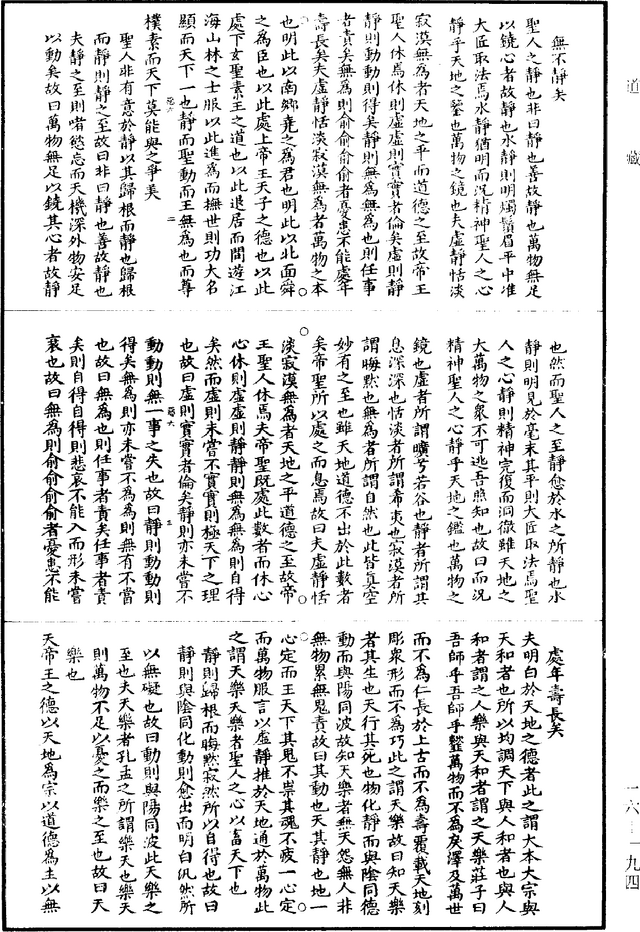 道藏
無不靜矣
聖人之靜也非曰靜也善故靜也萬物無足
以鐃心者故靜也水靜則明燭鬚眉平中准
大匠取法焉水靜猶明而況精神聖人之心
靜乎天地之鑒也萬物之鏡也夫虛靜恬淡
寂漠無為者天地之平而道德之至故帝王
聖人休焉休則虛虛則實實者倫矣虛則靜
靜則動動則得矣靜則無為無為也則任事
者責矣無為則俞俞俞俞者憂患不能處年
壽長矣夫虛靜恬淡寂漠無為者萬物之本
也明此以南鄉堯之為君也明此以北面舜
之為臣也以此處上帝王天子之德也以此
處下玄聖素王之道也以此退居而閒遊江
海山林之士服以此進為而撫世則功大名
顯而天下一也靜而聖動而王無為也而尊
樸素而天下莫能與之爭美
聖人非有意於靜以其歸根而靜也歸根
而靜則靜之至故曰非曰靜也善故靜也
夫靜之至則嗜慾忘而天機深外物安足
以動矣故曰萬物無足以鐃其心者故靜
也然而聖人之至靜愈於水之所靜也水
靜則明見於毫末其平則大匠取法焉聖
人之心靜則精神完復而洞徹雖天地之
大萬物之衆不可逃吾照知也故曰而況
精神聖人之心靜乎天地之鑑也萬物之
鏡也虛者所謂曠兮若谷也靜者所謂其
息深深也恬淡者所謂希夷也寂漠者所
謂晦默也無為者所謂自然也此皆真空
妙有之至也雖天地道德不出於此數者
矣帝聖所以處之而息焉故曰夫虛靜恬
淡寂漠無為者天地之平道德之至故帝
王聖人休焉夫帝聖既處此數者而休心
心休則虛虛則靜靜則無為無為則自得
矣然而虛則未嘗不實實則極天下之理
也故曰虛則實實者倫矣靜則亦未嘗不
動動則無一事之失也故曰靜則動動則
得矣無為則亦未嘗不為為則無有不當
也故曰無為也則任事者責矣任事者責
矣則自得自得則悲哀不能入而形未嘗
衰也故曰無為則俞俞俞俞者憂患不能
處年壽長矣
夫明白於天地之德者此之謂大本大宗與
天和者也所以均調天下與人和者也與人
和者謂之人樂與天和者謂之天樂莊子曰
吾師乎吾師乎𩐎萬物而不為戾澤及萬世
而不為仁長於上古而不為壽覆載天地刻
彫衆形而不為巧此之謂天樂故曰知天樂
者其生也天行其死也物化靜而與陰同德
動而與陽同波故知天樂者無天怨無人非
無物累無鬼責故曰其動也天其靜也地一
心定而王天下其鬼不祟其魂不疲一心定
而萬物服言以虛靜推於天地通於萬物此
之謂天樂天樂者聖人之心以畜天下也
靜則歸根而晦默寂然所以自得也故曰
靜則與陰同化動則愈出而明白汎然所
以無礙也故曰動則與陽同波此天樂之
至也夫天樂者孔孟之所謂樂天也樂天
則萬物不足以憂之而樂之至也故曰天
樂也
天帝王之德以天地為宗以道德為主以無
一六―一九四